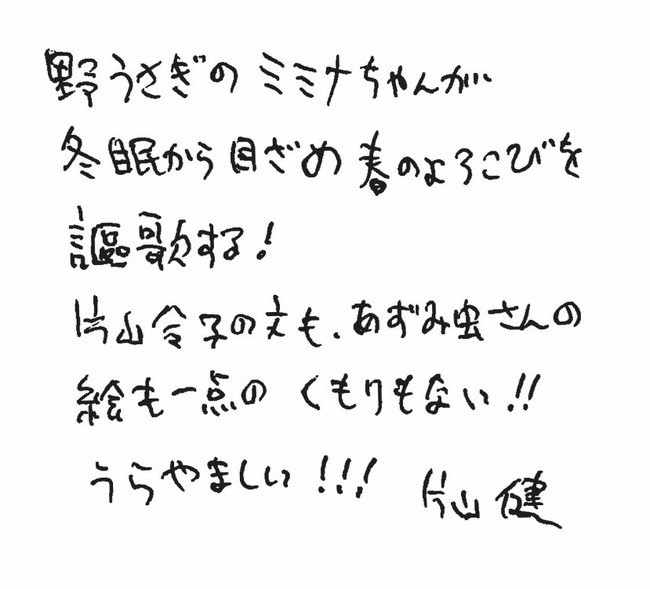 野うさぎのミミナちゃんが
冬眠から目ざめ春のよろこびを
謳歌する!
片山令子の文も、あずみ虫さんの
絵も一点のくもりもない!!
うらやましい!!! 片山健